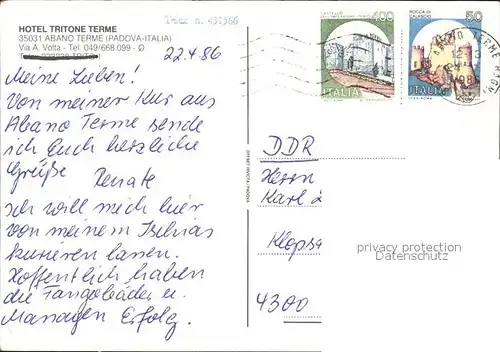 Telex n. 431566
HOTEL TRITONE TERME
35031 ABANO TERME (PADOVA-ITALIA)
Via A. Volta - Tel. 049/668.099 -
22.4.86
Meine Lieben!
Von meiner Kur aus
Abano Terme sende
ich Euch herzliche
Grüße Renate
Ich will mich hier
von meinem Ischias
kurieren lassen.
Hoffentlich haben
die Fangobäder u.
Massagen Erfolg.
CASTELLO
400
ITALIA
ROCCA DI
CALASCIO
50
ITALIA
ABANO TERME
DDR
Herrn
Karl
Klopst
4300
privacy protection
Datenschutz